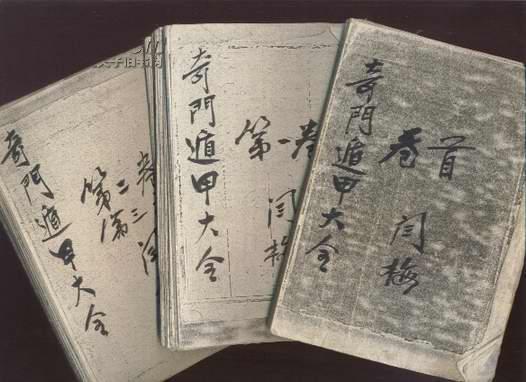 奇門遁甲大全
第二
第三
卷
閆
奇門遁甲大全
第一卷
閆梅
奇門遁甲大全
首
卷
閆梅